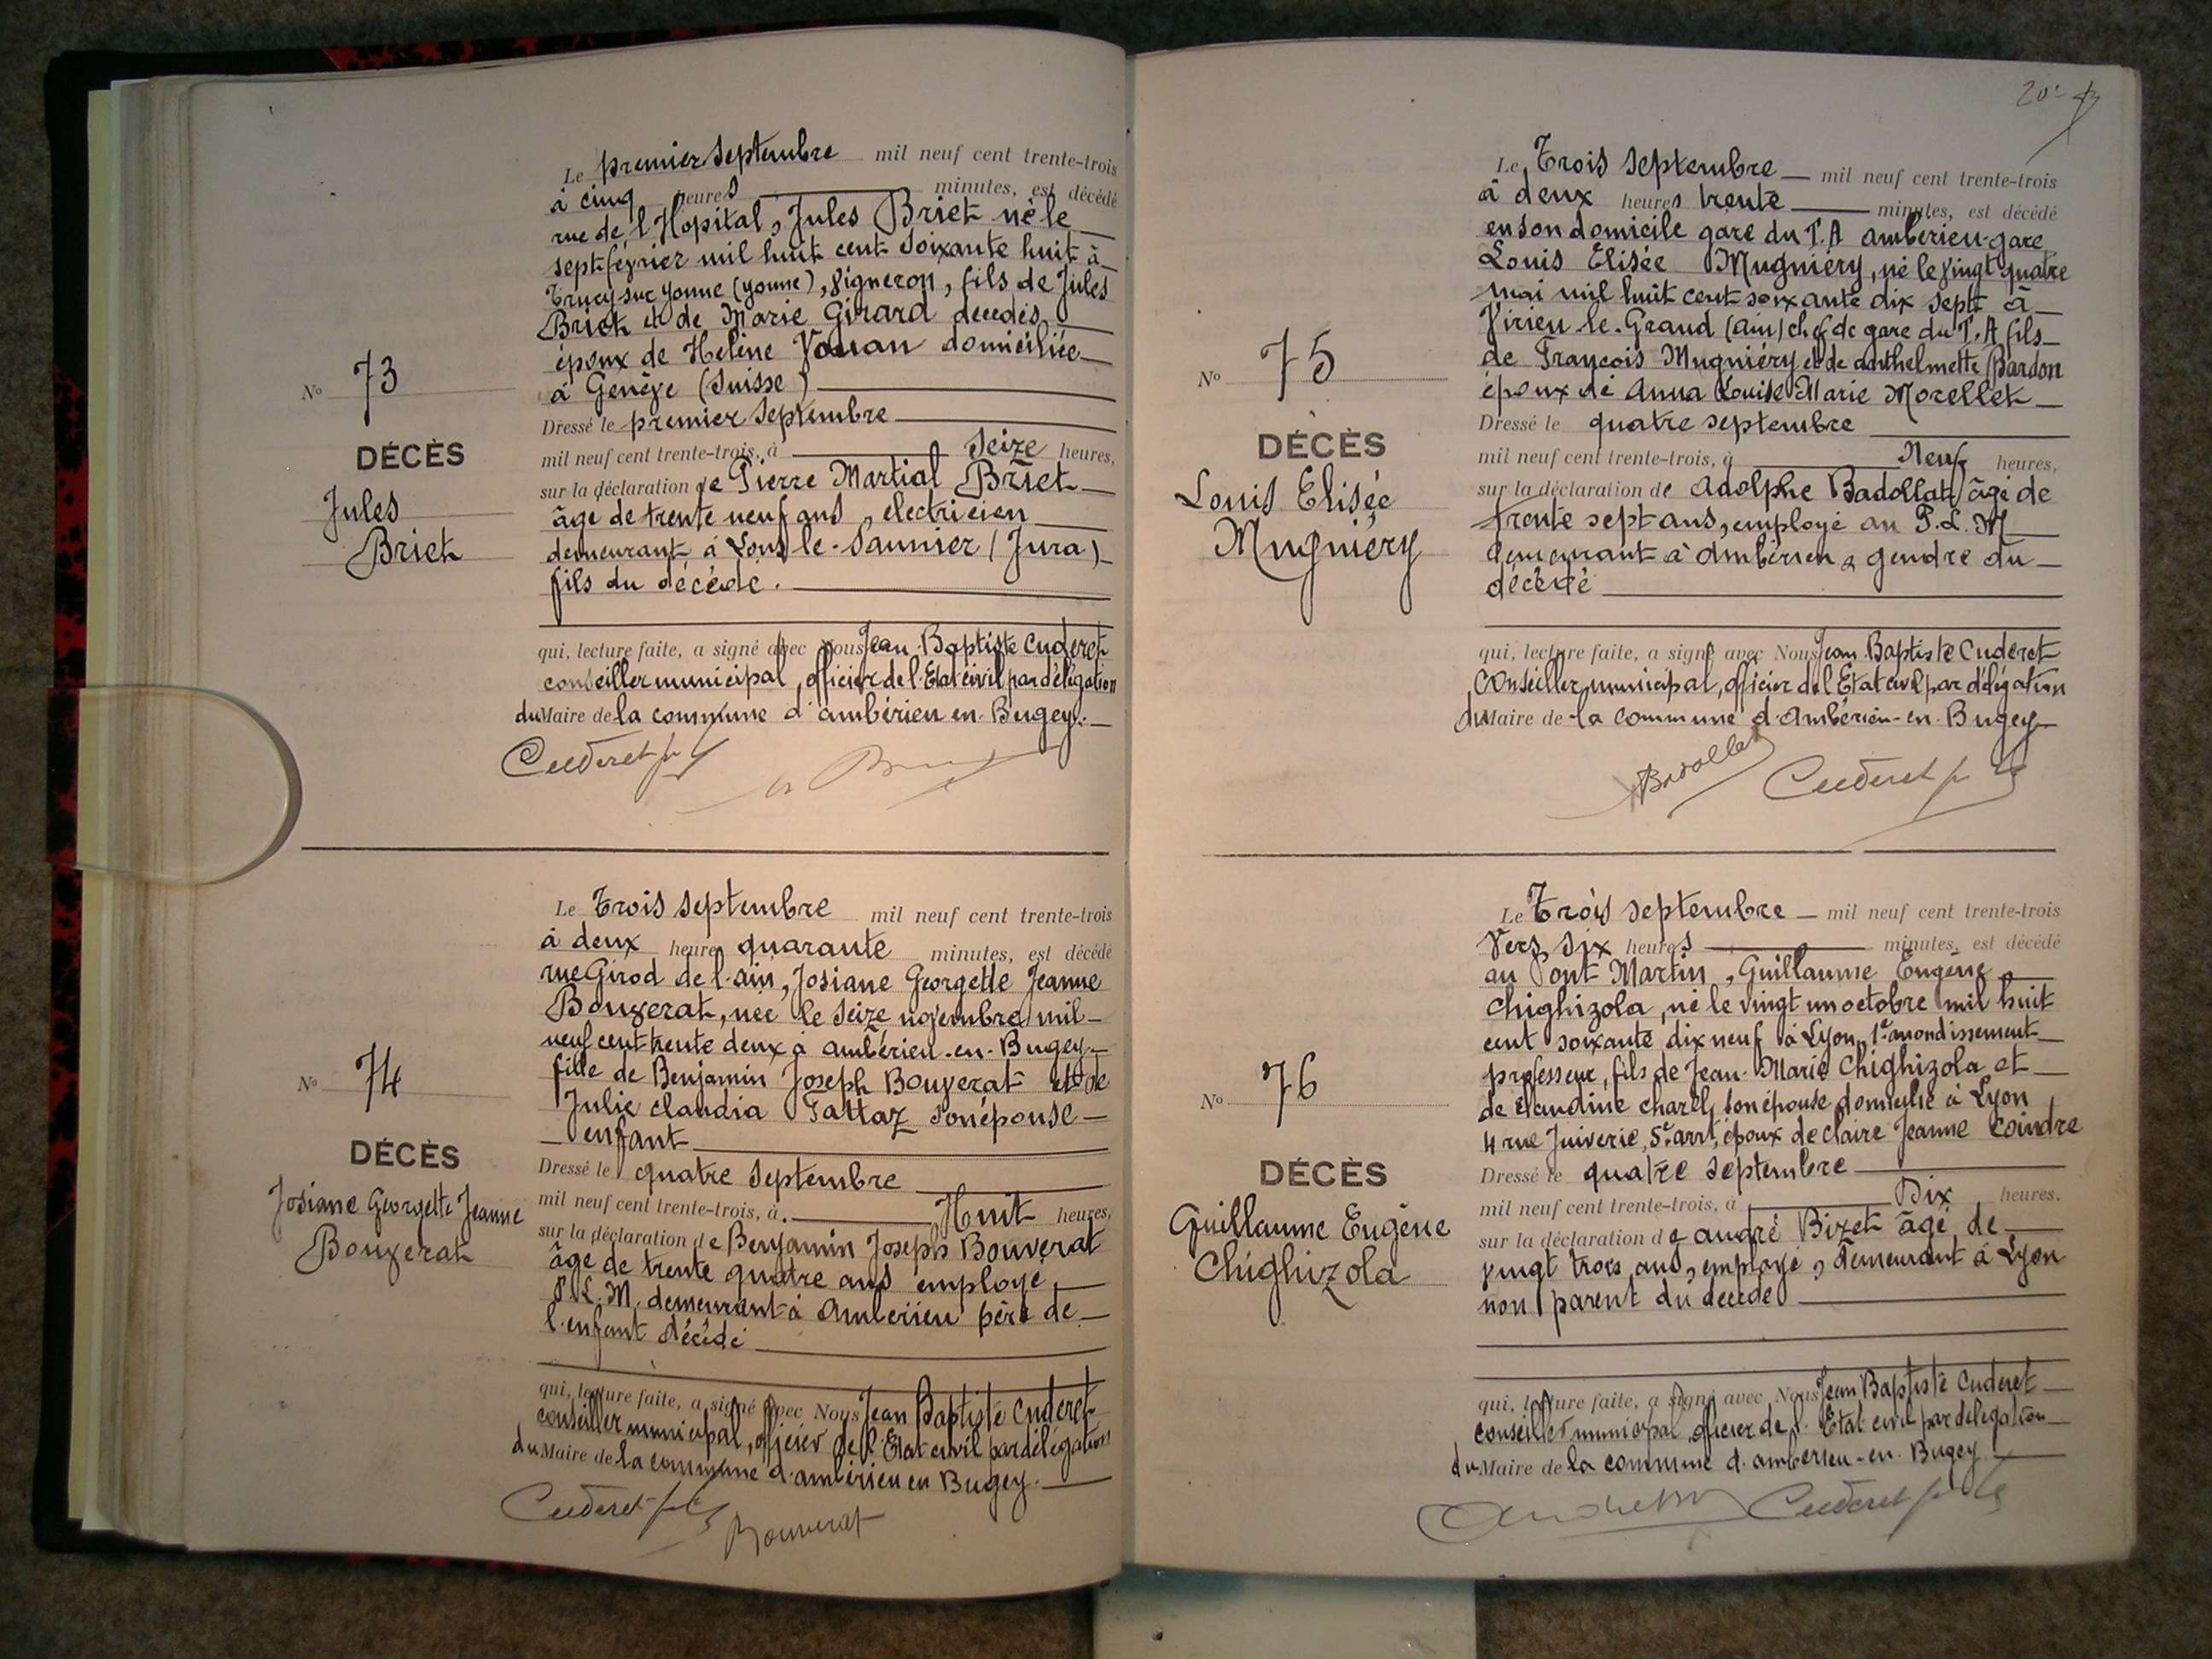 Le premier septembre mil neuf cent trente-trois
à cinq heures minutes, est décédé
rue de l'Hopital, Jules Briet né le
sept février mil huit cent soixante huit à
Trucy sur Yonne (Yonne), vigneron, fils de Jules
Briet et de Marie Girard décédés
époux de Helène Vouan domiciliée
à Genève (Suisse)
Dressé le premier septembre
mil neuf cent trente-trois, à Seize heures,
sur la déclaration de Pierre Martial Briet
âge de trente neuf ans, electricien
demeurant à Lons le-Saunier (Jura)
fils du décédé.
qui, lecture faite, a signé avec Nous Jean Baptiste Cuderet
conseiller municipal, officier de l'Etat civil par délégation
du Maire de la commune d'ambérieu en-Bugey.
Cuderet
No 73
DÉCÈS
Jules
Briet
Le Trois septembre mil neuf cent trente-trois
à deux heures quarante minutes, est décédé
rue Girod de l'ain, Josiane Georgette Jeanne
Bouverat, née le seize novembre mil
neuf cent trente deux à ambérieu-en-Bugey
fille de Benjamin Joseph Bouverat et de
Julie Claudia Tattaz son épouse
enfant
Dressé le quatre septembre
mil neuf cent trente-trois, à Huit heures,
sur la déclaration de Benjamin Joseph Bouverat
âge de trente quatre ans employé
P.L.M. demeurant à Ambérieu père de
l'enfant décédé
qui, lecture faite, a signé avec Nous Jean Baptiste Cuderet
conseiller municipal, officier de l'Etat civil par délégation
du Maire de la commune d'ambérieu en Bugey.
Cuderet
Bouverat
No 74
DÉCÈS
Josiane Georgette Jeanne
Bouverat
20
Le Trois septembre mil neuf cent trente-trois
à deux heures trente minutes, est décédé
en son domicile gare du T.A ambérieu-gare
Louis Elisée Mugniéry, né le vingt quatre
mai mil huit cent soixante dix sept à
Virieu-le-Grand (ain) chef de gare du T.A fils
de François Mugniéry et de anthelmette Bardon
époux de Anna Louise Marie Morellet
Dressé le quatre septembre
mil neuf cent trente-trois, à Neuf heures,
sur la déclaration de Adolphe Badollat, âgé de
trente sept ans, employé au P.L.M
demeurant à Ambérieu, gendre du
décédé
qui, lecture faite, a signé avec Nous Jean Baptiste Cuderet
conseiller municipal, officier de l'Etat civil par délégation
du Maire de la commune d'Ambérieu-en-Bugey
Badollat Cuderet
No 75
DÉCÈS
Louis Elisée
Mugniéry
Le Trois septembre mil neuf cent trente-trois
Vers six heures minutes, est décédé
au Pont Martin, Guillaume Eugène
Chighizola, né le vingt un octobre mil huit
cent soixante dix neuf à Lyon 1er arrondissement
professeur, fils de Jean-Marie Chighizola et
de Claudine Charel, son épouse domicilié à Lyon
4 rue Juiverie, 5e arrt, époux de Claire Jeanne Coindre
Dressé le quatre septembre
mil neuf cent trente-trois, à Dix heures,
sur la déclaration de andré Bizet âgé de
vingt trois ans, employé, demeurant à Lyon
non parent du décédé
qui, lecture faite, a signé avec Nous Jean Baptiste Cuderet
conseiller municipal officier de l'Etat civil par délégation
du Maire de la commune d'ambérieu-en-Bugey
Cuderet
No 76
DÉCÈS
Guillaume Eugène
Chighizola